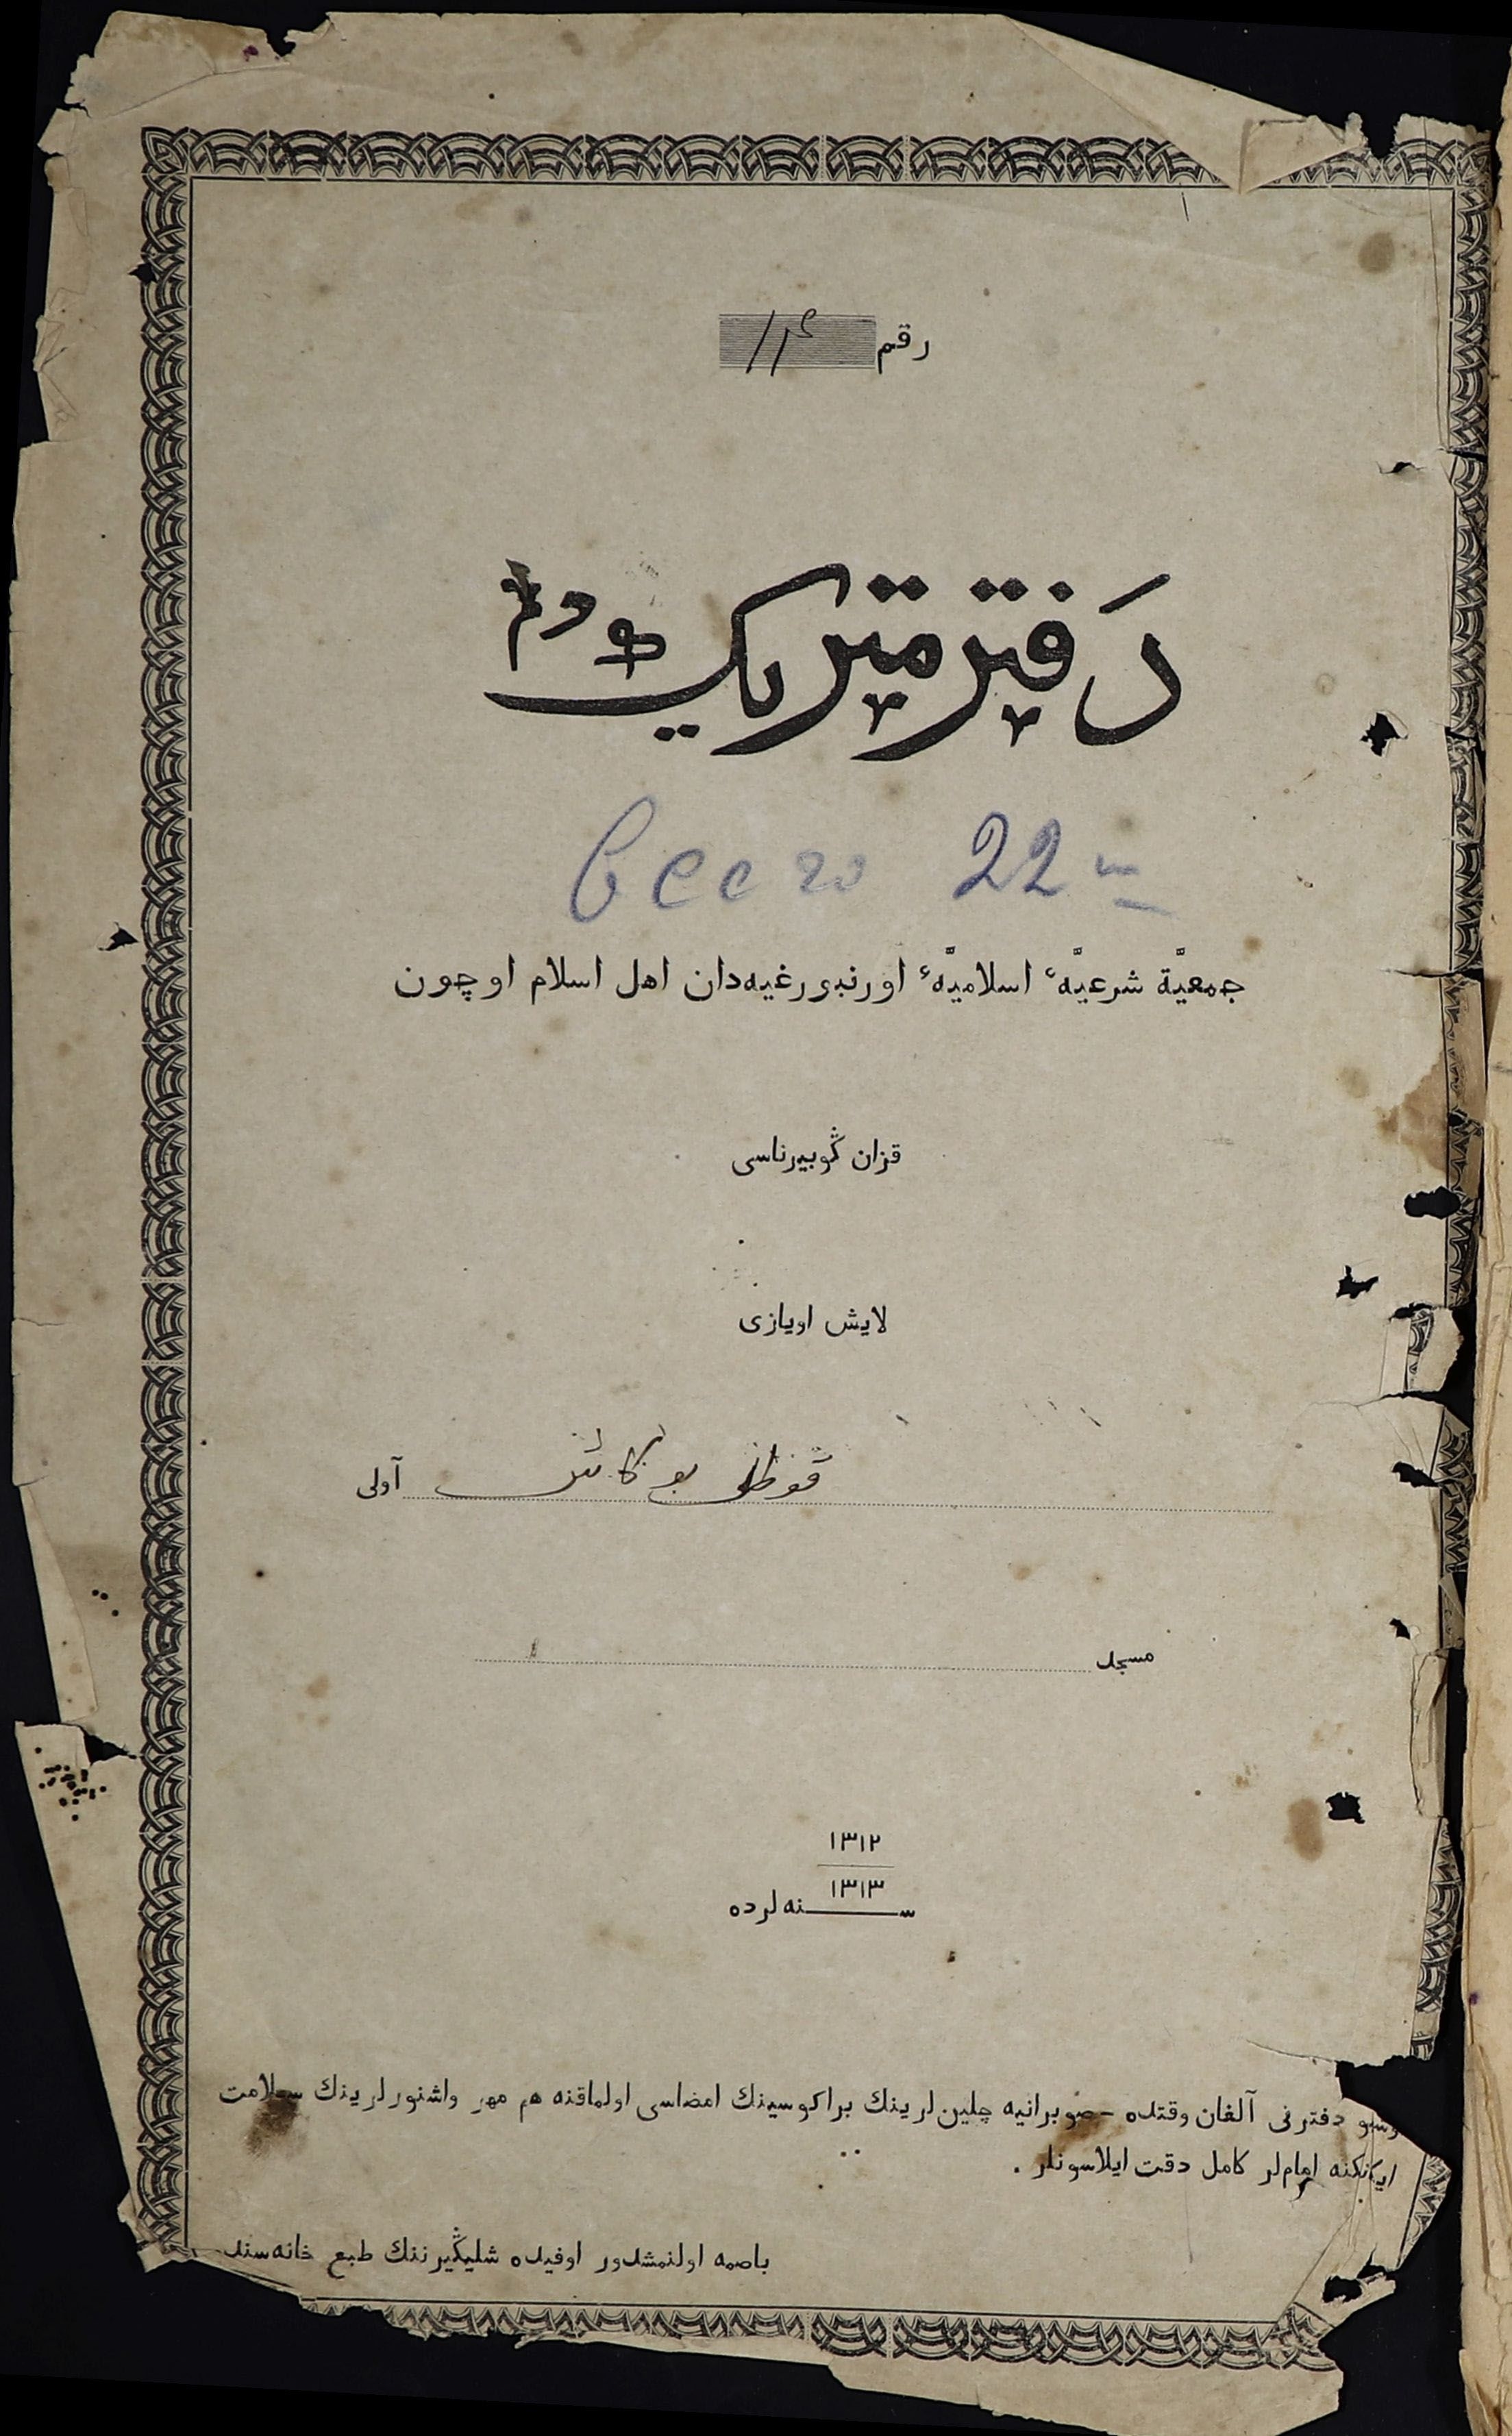 رقم ١١٤
دَفتر متريك
всего 22
جمعيّة شرعيّهٔ اسلاميّهٔ اورنبورغيه‌دان اهل اسلام اوچون
قزان ڭوبيرناسى
لايش اويازى
آولى
مسجد
١٣١٢
١٣١٣
سنه‌لرده
دفترنى آلغان وقتده صوبرانيه چلين‌لرينك براكوسينك امضاسى اولماقنه هم مهر واشنورلرينك سلامت
ايكانكنه امام‌لر كامل دقت ايلاسونلر .
باصمه اولنمشدور اوفيده شليڭيرننك طبع خانه‌سنده